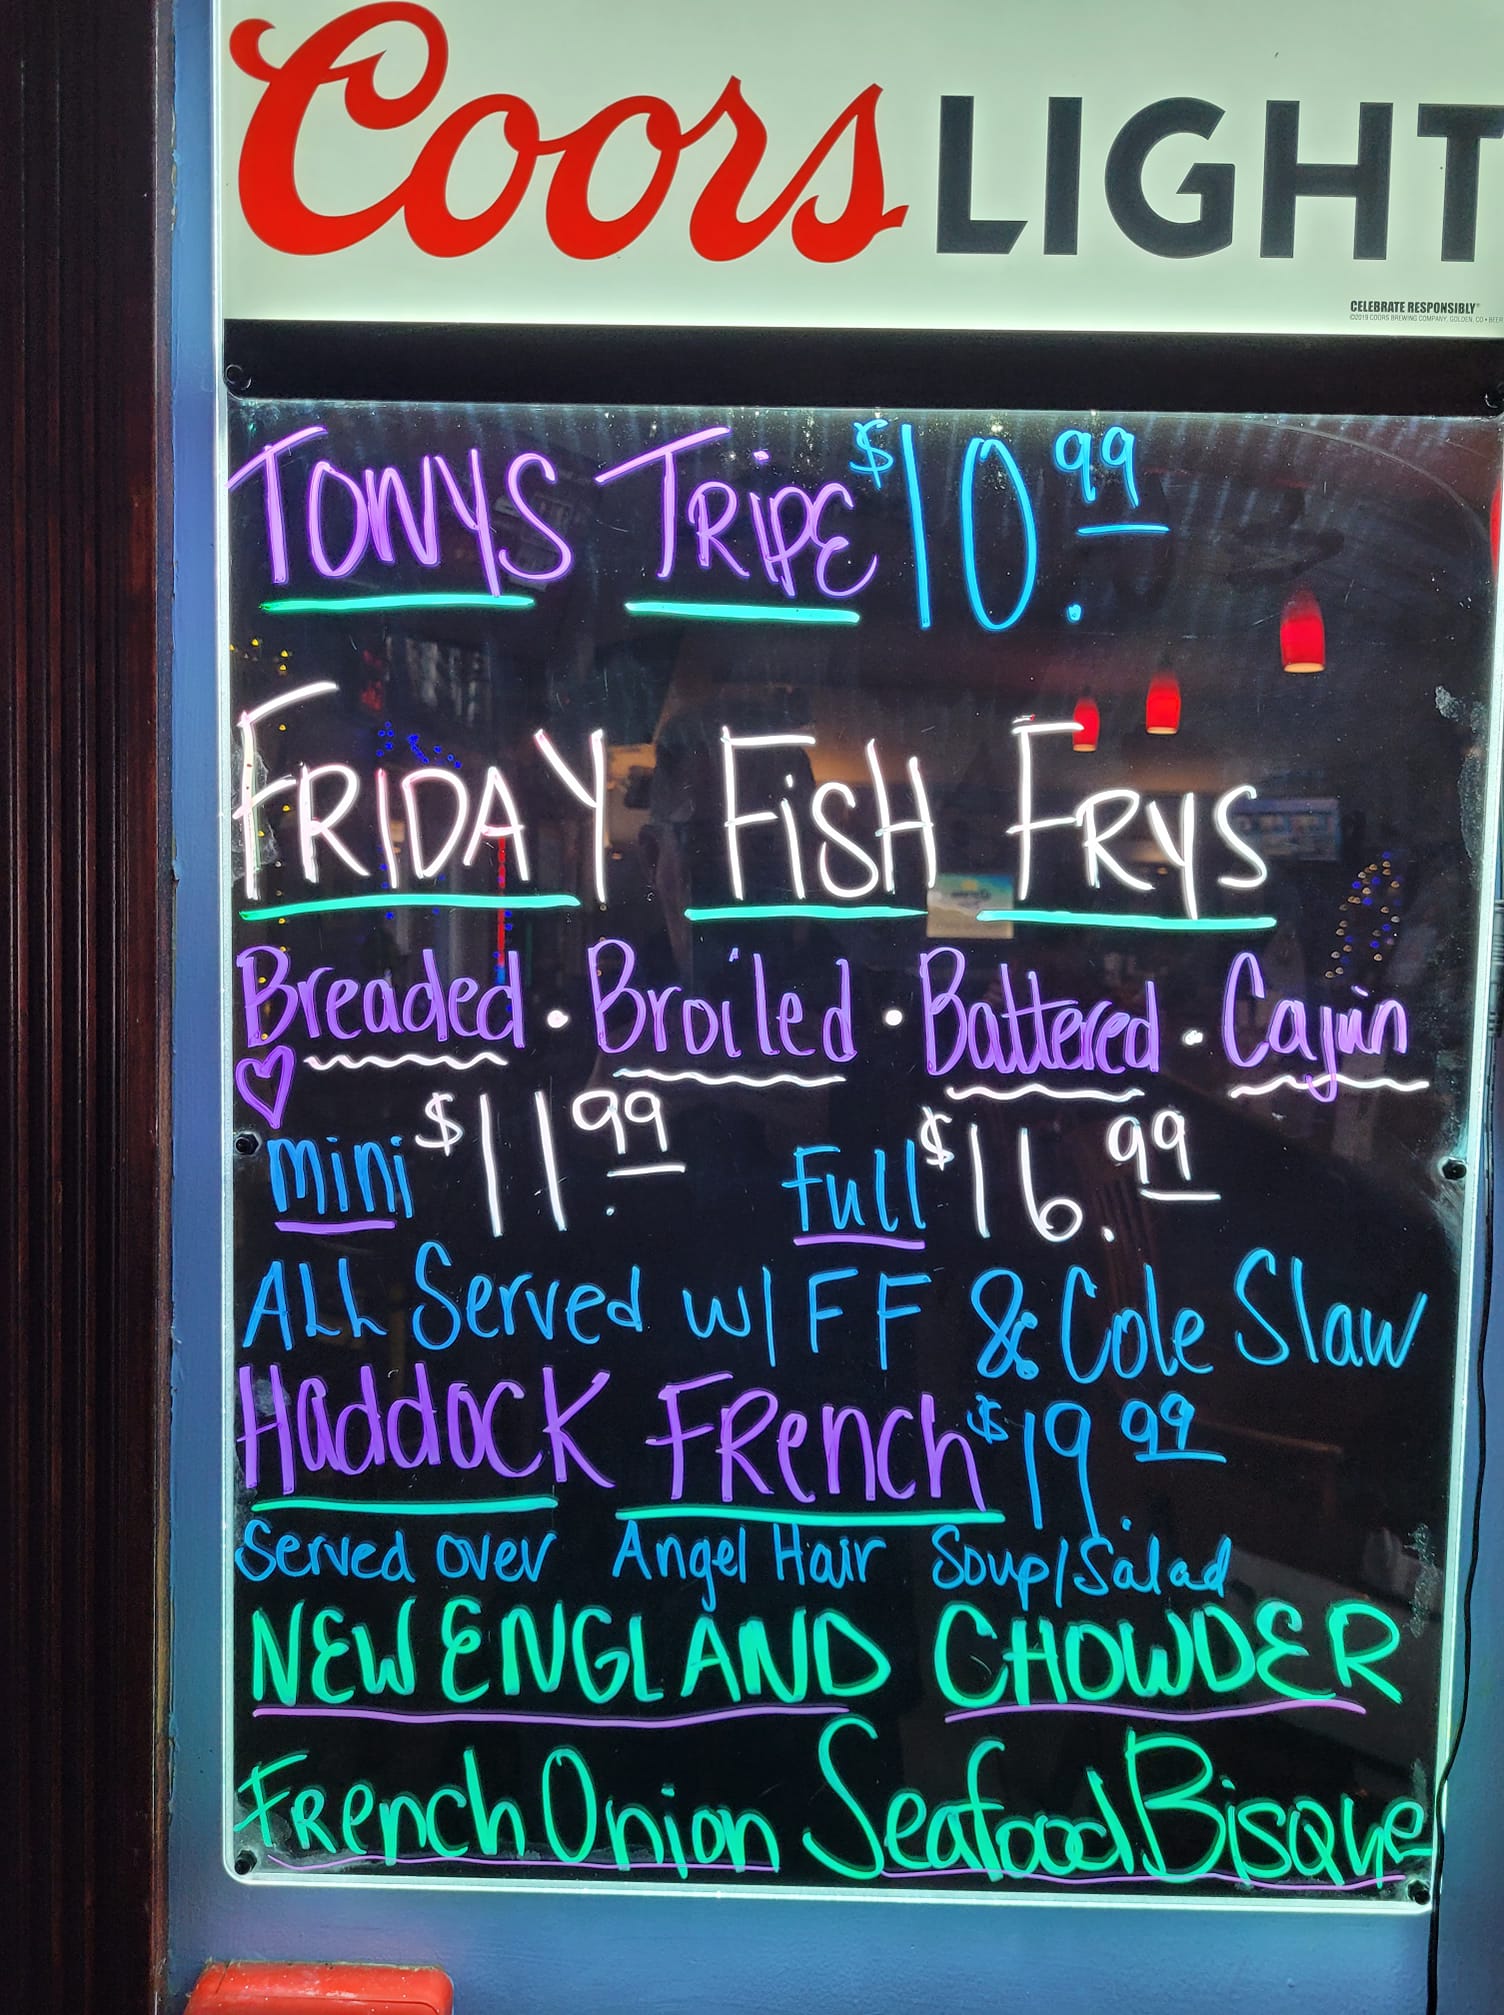 Coors LIGHT
CELEBRATE RESPONSIBLY®
©2019 COORS BREWING COMPANY, GOLDEN, CO • BEER
TONYS TRIPE $10.99
FRIDAY FISH FRYS
Breaded · Broiled · Battered · Cajun
mini $11.99 Full $16.99
ALL Served w/ FF & Cole Slaw
HaddocK FRench $19.99
Served over Angel Hair Soup/Salad
NEW ENGLAND CHOWDER
FRench Onion Seafood Bisque